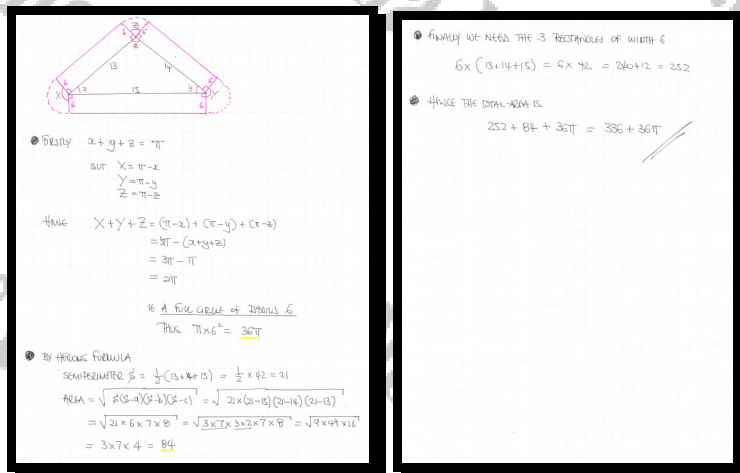 Z
6 6
z
13 14
6 6
X x 15 y Y
6 6
FIRSTLY x + y + z = π
BUT X = π - x
Y = π - y
Z = π - z
HENCE X + Y + Z = (π - x) + (π - y) + (π - z)
= 3π - (x + y + z)
= 3π - π
= 2π
IE A FULL CIRCLE OF RADIUS 6
THUS π × 6² = 36π
BY HERONS FORMULA
SEMIPERIMETER S = ½ (13 + 14 + 15) = ½ × 42 = 21
AREA = √S(S-a)(S-b)(S-c) = √21 × (21-15)(21-14)(21-13)
= √21 × 6 × 7 × 8 = √3 × 7 × 3 × 2 × 7 × 8 = √9 × 49 × 16
= 3 × 7 × 4 = 84
FINALLY WE NEED THE 3 RECTANGLES OF WIDTH 6
6 × (13 + 14 + 15) = 6 × 42 = 240 + 12 = 252
HENCE THE TOTAL AREA IS
252 + 84 + 36π = 336 + 36π